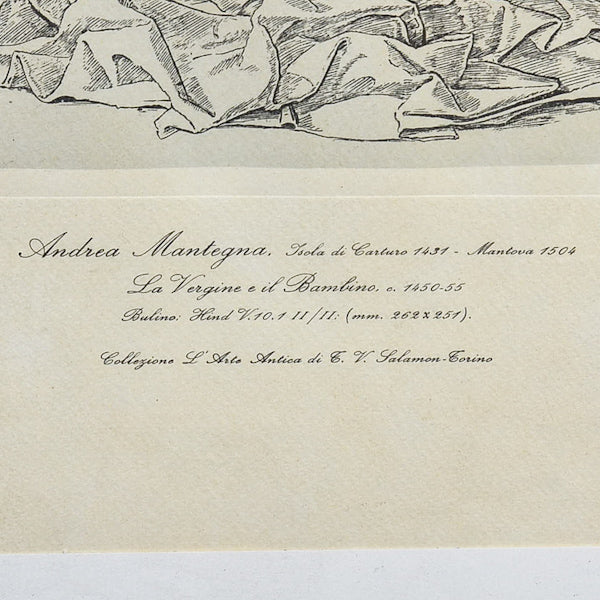 Andrea Mantegna, Isola di Carturo 1431 - Mantova 1504
La Vergine e il Bambino, c. 1450-55
Bulino: Hind V.10.1 II/II: (mm. 262x251).
Collezione L'Arte Antica di T. V. Salamon-Torino